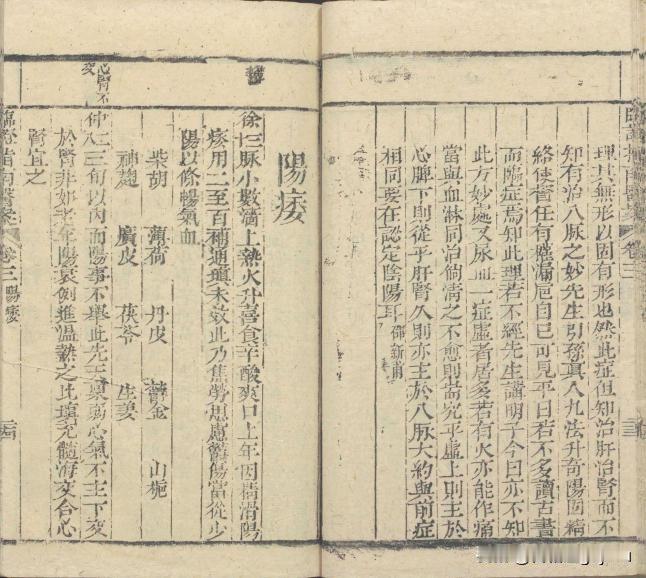 臨證指南醫案
卷三
理其無形以固有形也然此症但知治肝治腎而不
知有治八脉之妙先生引孫真人九法升奇陽固精
絡使督任有權漏巵自已可見平日若不多讀古書
而臨症焉知此理若不經先生講明予今日亦不知
此方妙處又尿血一症虛者居多若有火亦能作痛
當與血淋同治倘清之不愈則當究乎虛上則主於
心脾下則從乎肝腎久則亦主於八脉大約與前症
相同要在認定陰陽耳邵新甫
陽痿
徐三十 脉小數濇上熱火升喜食辛酸爽口上年因精滑陽
痿用二至百補通填未效此乃焦勞思慮鬱傷當從少
陽以條暢氣血
柴胡 薄荷 丹皮 鬱金 山梔
神麯 廣皮 茯苓 生姜
心腎不交
仲二八 三旬以內而陽事不舉此先天稟弱心氣不主下交
於腎非如老年陽衰例進溫熱之比填充髓海交合心
腎宜之
臨證指南醫案
卷三 陽痿